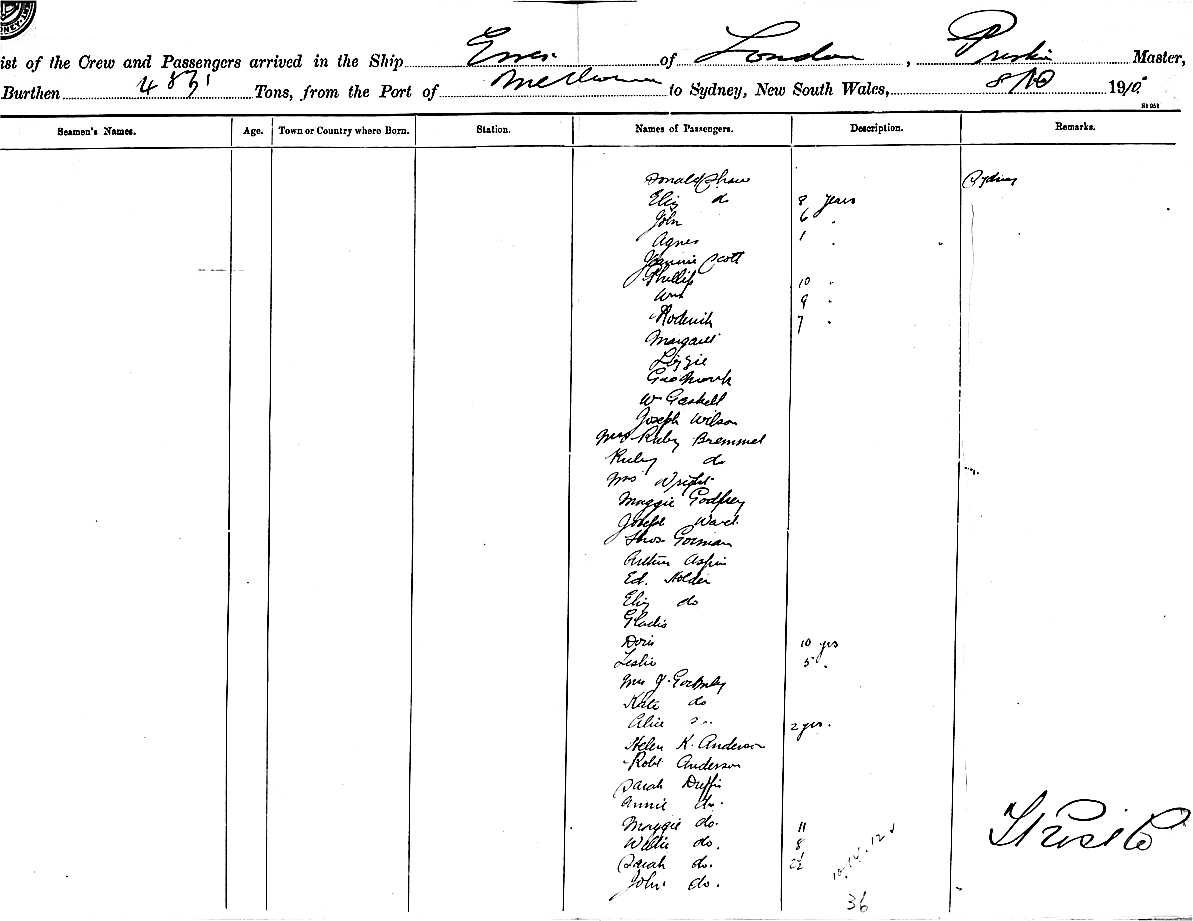 ist of the Crew and Passengers arrived in the Ship of London, Master,
Burthen 4831 Tons, from the Port of Melbourne to Sydney, New South Wales, 8/10 1910
Seamen's Names. Age. Town or Country where Born. Station. Names of Passengers. Description. Remarks.
Donald Shaw Sydney
Eliz do 8 years
John 6 "
Agnes 1 "
Jeannie Scott
Phillip 10 "
Wm 9 "
Roderick 7 "
Margaret
Lizzie
Geo
W Gaskell
Joseph Wilson
Mrs Ruby Bremmel
Ruby do
Mrs Wright
Maggie Godfrey
Joseph Ward
Thos Gorman
Arthur Aspin
Ed. Holder
Eliz do
Gladis
Doris 10 yrs
Leslie 5 "
Mrs J. Gormley
Kate do
Alice do 2 yrs.
Helen K. Anderson
Robt Anderson
Sarah Duffin
Annie do.
Maggie do. 11
Willie do. 8
Sarah do.
John do.
36